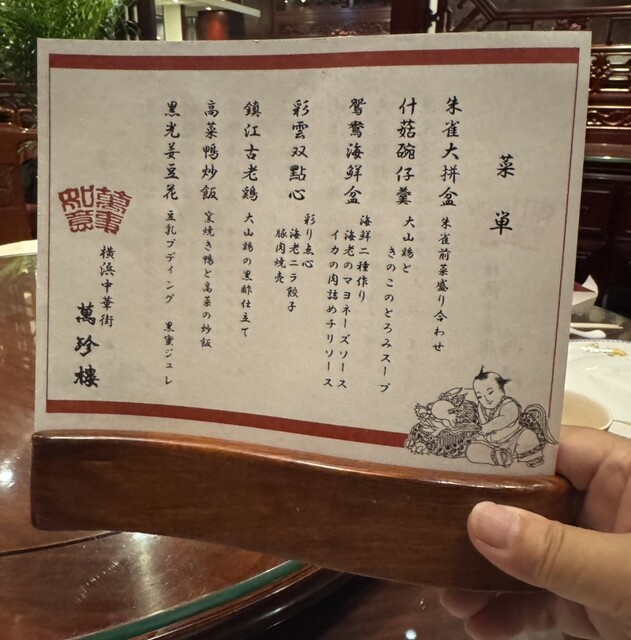 菜単
朱雀大拼盒 朱雀前菜盛り合わせ
什菇碗仔羹 大山鶏と
きのこのとろみスープ
鴛鴦海鮮盒 海鮮二種作り
海老のマヨネーズソース
イカの肉詰めチリソース
彩雲双點心 彩り点心
海老ニラ餃子
豚肉焼売
鎮江古老鶏 大山鶏の黒酢仕立て
高菜鴨炒飯 窯焼き鴨と高菜の炒飯
黒光姜豆花 豆乳プディング 黒蜜ジュレ
萬事
如意
横浜中華街
萬珍樓